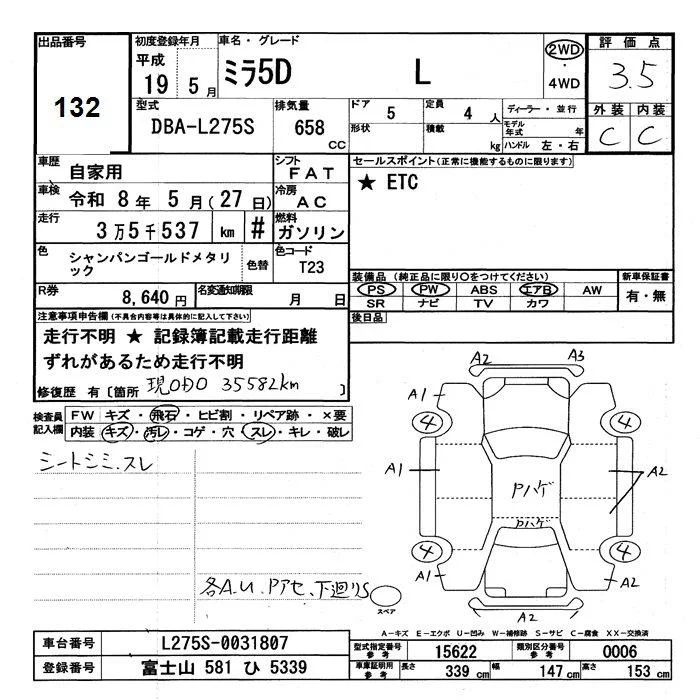 出品番号
132
初度登録年月
平成
19 5 月
車名・グレード
ミラ5D L
2WD
・
4WD
評価点
3.5
外装 内装
C C
型式
DBA-L275S
排気量
658
CC
ドア 5
定員 4 人
形状
積載 kg
ディーラー・並行
モデル年式 年
ハンドル 左・右
車歴 自家用
シフト FAT
車検 令和 8 年 5 月(27 日)
冷房 AC
走行 3万5千537 km #
燃料 ガソリン
色 シャンパンゴールドメタリック
色替
色コード T23
R券 8,640 円
名変通知期限 月 日
セールスポイント(正常に機能するものに限ります)
★ ETC
装備品 (純正品に限り○をつけてください)
PS PW ABS エアB AW
SR ナビ TV カワ
新車保証書
有・無
後日品
注意事項申告欄(不具合内容等は具体的に記入して下さい)
走行不明 ★ 記録簿記載走行距離
ずれがあるため走行不明
修復歴 有〔箇所 現ODO 35582km 〕
検査員記入欄
FW キズ・飛石・ヒビ割・リペア跡・×要
内装 キズ・汚レ・コゲ・穴・スレ・キレ・破レ
シートシミ、スレ
各A.U.Pアセ、下廻りS
A2 A3
A1
4 4
A1 Pハゲ A2
Pハゲ
4 4
A1 A2
A2
スペア
A-キズ E-エクボ U-凹み W-補修跡 S-サビ C-腐食 XX-交換済
車台番号 L275S-0031807
登録番号 富士山 581 ひ 5339
型式指定番号 参考 15622
類別区分番号 参考 0006
車庫証明用 参考 長さ 339 cm 幅 147 cm 高さ 153 cm